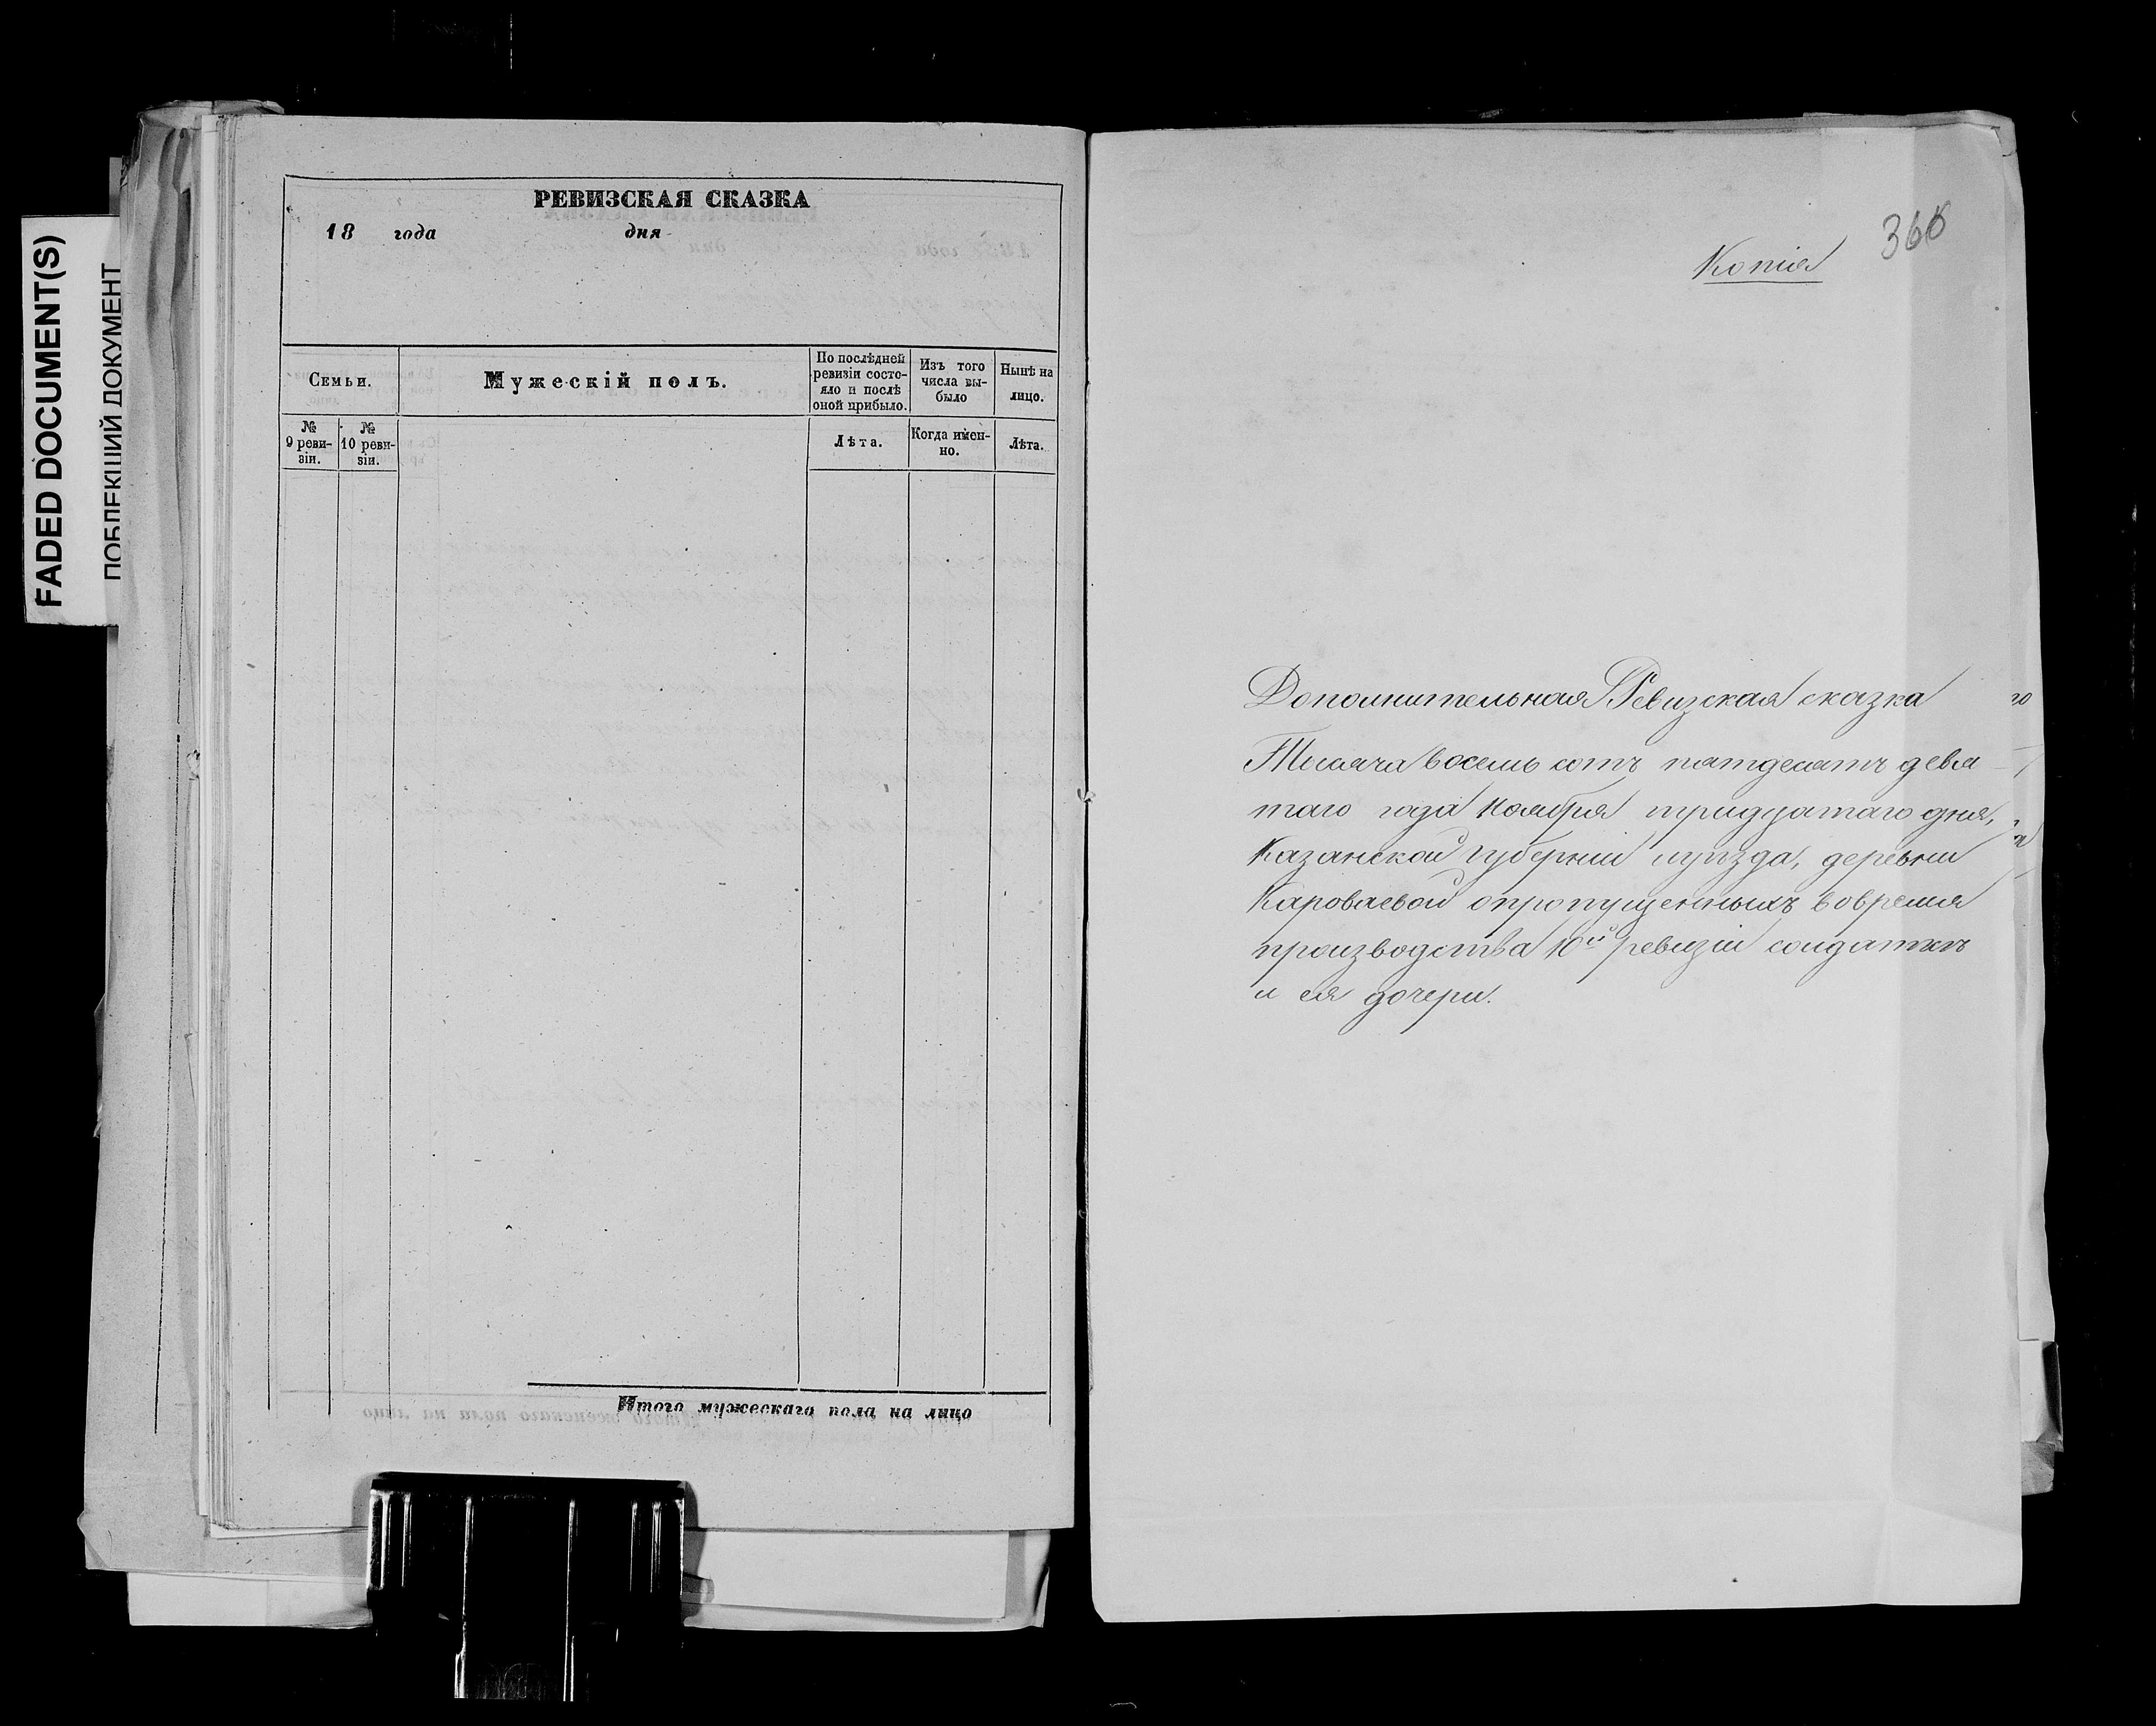 FADED DOCUMENT(S)
ПОБЛЕКШИЙ ДОКУМЕНТ
РЕВИЗСКАЯ СКАЗКА
18 года дня
Семьи.
Мужескій полъ.
По послѣдней
ревизіи состо-
яло и послѣ
оной прибыло.
Изъ того
числа вы-
было
Нынѣ на
лицо.
№
9 реви-
зіи.
№
10 реви-
зіи.
Лѣта.
Когда имен-
но.
Лѣта.
Итого мужескаго пола на лицо
366
Копія
Дополнительная Ревизская сказка
Тысяча восемь сотъ пятдесятъ девя
таго года Ноября тридцатаго дня,
Казанской губерніи и уѣзда, деревни
Кароваевой о пропущенныхъ во время
производства 10й ревизіи солдаткѣ
и ея дочери.